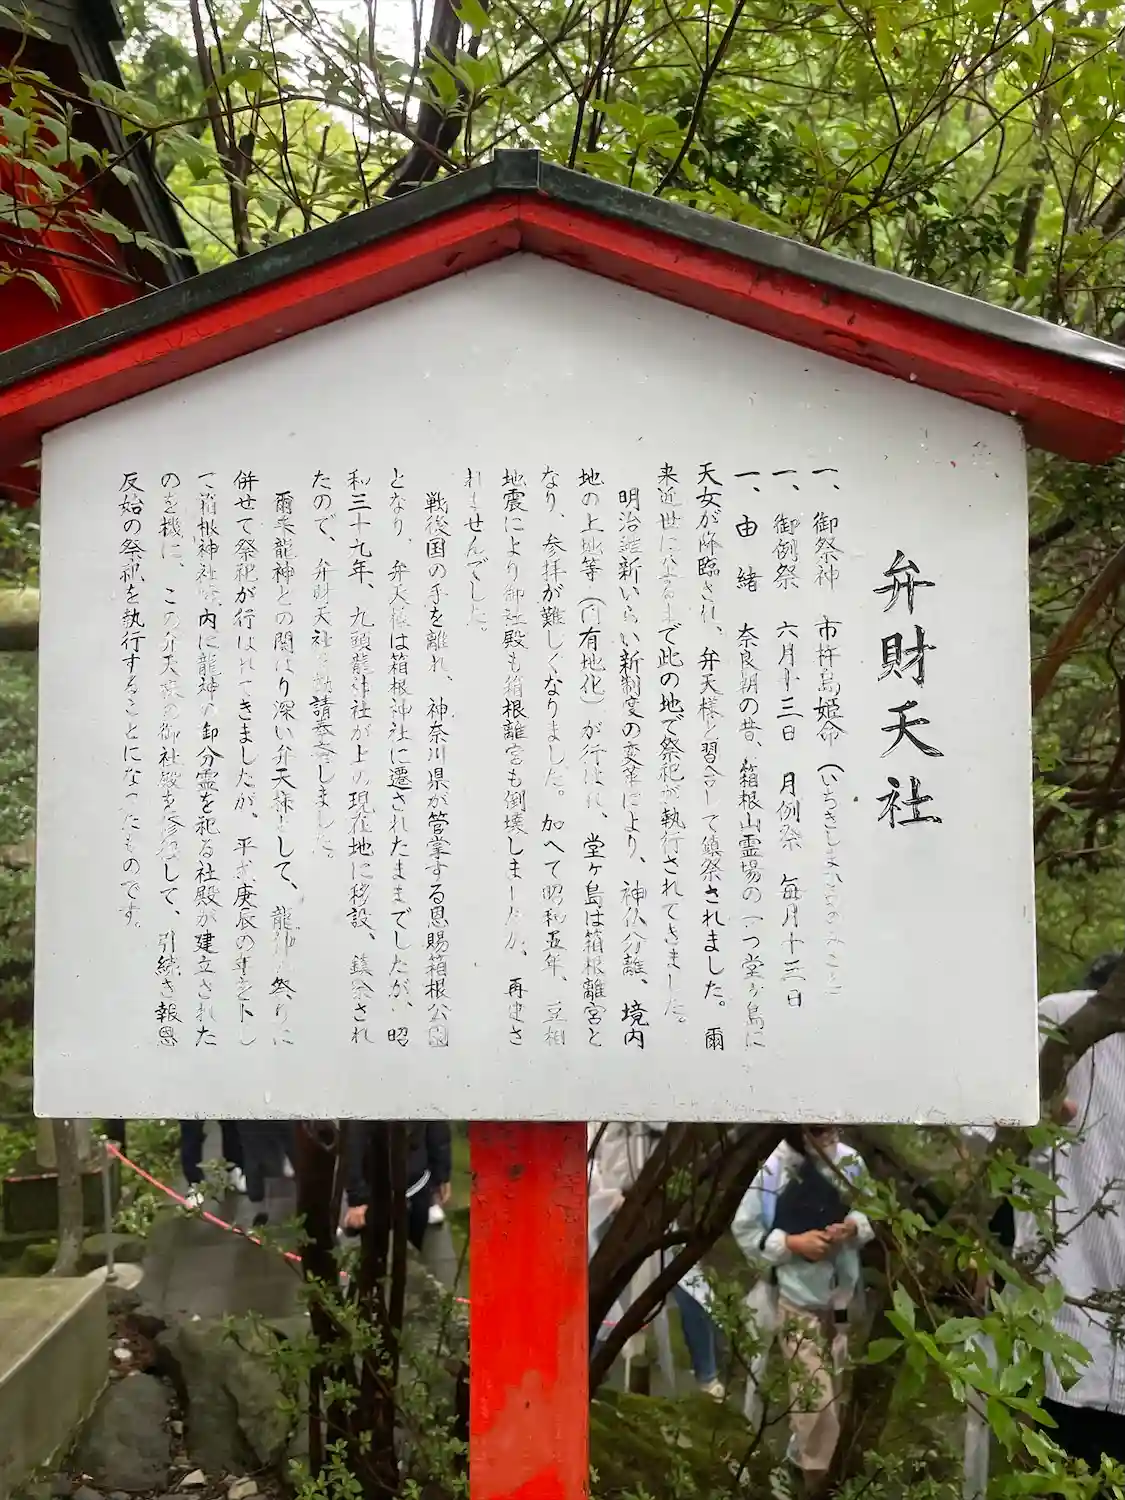 弁財天社
一、御祭神 市杵島姫命(いちきしまひめのみこと)
一、御例祭 六月十三日 月例祭 毎月十三日
一、由 緒 奈良朝の昔、箱根山霊場の一つ堂ヶ島に
天女が降臨され、弁天様と習合して鎮祭されました。爾
来近世に至るまで此の地で祭祀が執行されてきました。
明治維新いらい新制度の変革により、神仏分離、境内
地の上地等(官有地化)が行はれ、堂ヶ島は箱根離宮と
なり、参拝が難しくなりました。加へて昭和五年、豆相
地震により御社殿も箱根離宮も倒壊しましたが、再建さ
れませんでした。
戦後国の手を離れ、神奈川県が管掌する恩賜箱根公園
となり、弁天様は箱根神社に遷されたままでしたが、昭
和三十九年、九頭龍神社が上の現在地に移設、鎮祭され
たので、弁財天社も勧請奉斎しました。
爾来龍神との関はり深い弁天様として、龍神の祭りに
併せて祭祀が行はれてきましたが、平成庚辰の年をトし
て箱根神社境内に龍神の御分霊を祀る社殿が建立された
のを機に、この弁天様の御社殿を修復して、引続き報恩
反始の祭祀を執行することになったものです。